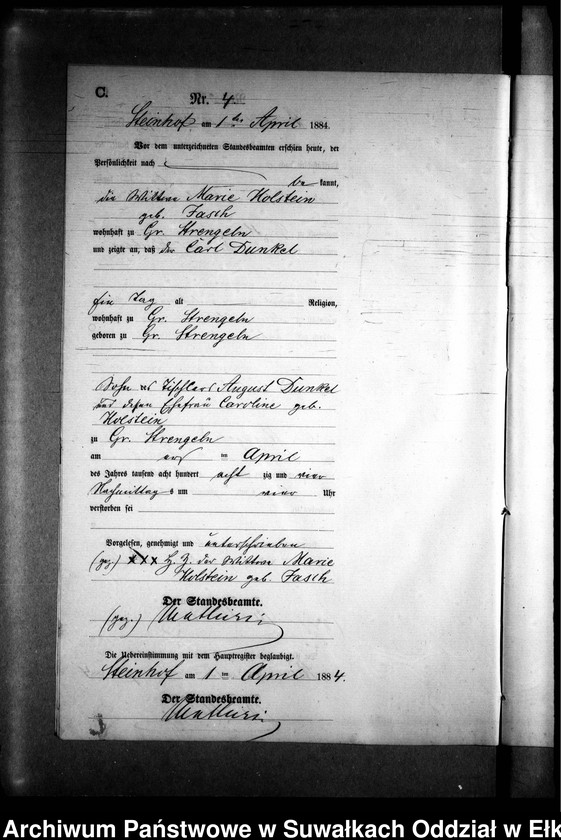 C.
Nr. 4.
Steinhof am 1ten April 1884
Vor dem unterzeichneten Standesbeamten erschien heute, der
Persönlichkeit nach
be kannt,
die Wittwe Marie Holstein
geb. Jasch
wohnhaft zu Gr. Strengeln
und zeigte an, daß der Carl Dunkel
Ein Tag alt Religion,
wohnhaft zu Gr. Strengeln
geboren zu Gr. Strengeln
Sohn des Tischlers August Dunkel
und dessen Ehefrau Caroline geb.
Holstein
zu Gr. Strengeln
am ersten April
des Jahres tausend acht hundert acht zig und vier
Nachmittags um vier Uhr
verstorben sei
Vorgelesen, genehmigt und unterschrieben
(gez.) XXX H. Z. der Wittwe Marie
Holstein geb Jasch
Der Standesbeamte.
(gez.)
Die Uebereinstimmung mit dem Hauptregister beglaubigt.
Steinhof am 1 ten April 1884.
Der Standesbeamte.
Archiwum Państwowe w Suwałkach Oddział w Ełk